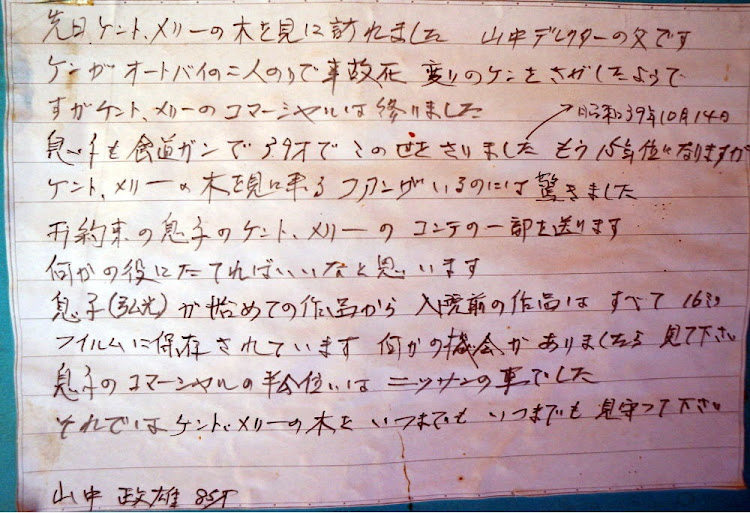 先日、ケント、メリーの木を見に訪れました 山中デレクターの父です
ケンがオートバイの二人のりで事故死 変りのケンをさがしたようで
すがケント、メリーのコマーシャルは終りました
昭和39年10月14日
息子も食道ガンで39才でこの世をさりました もう15年位になりますが
ケント、メリーの木を見に来るファンがいるのには驚きました
お約束の息子のケント、メリーのコンテの一部を送ります
何かの役にたてればいいなと思います
息子(弘光)が始めての作品から 入院前の作品は すべて 16ミリ
フイルムに保存されています 何かの機会がありましたら 見て下さい
息子のコマーシャルの半分位いは ニッサンの車でした
それではケント、メリーの木を いつまでも いつまでも 見守って下さい
山中 政雄 85才